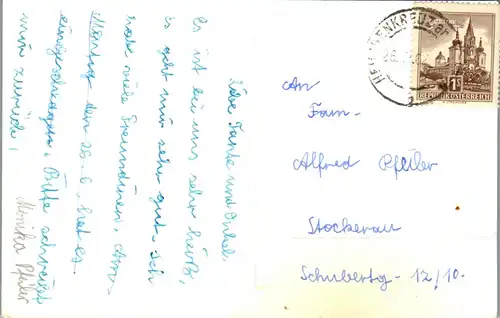 Liebe Tante und Onkel.
Es ist bei uns sehr heiß,
es geht mir sehr gut. Ich
habe viele Freundinen. Am
Montag den 26.6. hat es
eingeschlagen. Bitte schreibt
mir zurück!
Monika Pfeiler
An
Fam.
Alfred Pfeiler
Stockerau
Schubertg- 12/10.
HEILIGENKREUZ
26.
REPUBLIK ÖSTERREICH